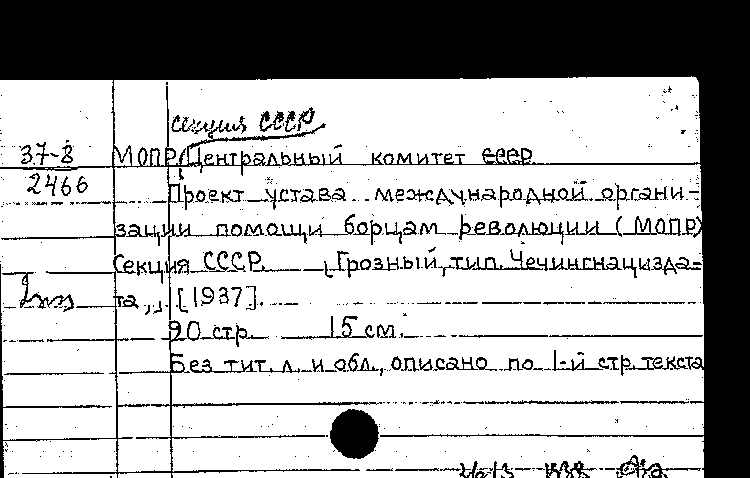 секция СССР
37-8 МОПР. Центральный комитет СССР
2466 Проект устава международной органи-
зации помощи борцам революции (МОПР)
Секция СССР. Грозный, тип. Чечингнацизда-
та, [1937].
20 стр. 15 см.
Без тит. л. и обл., описано по 1-й стр. текста